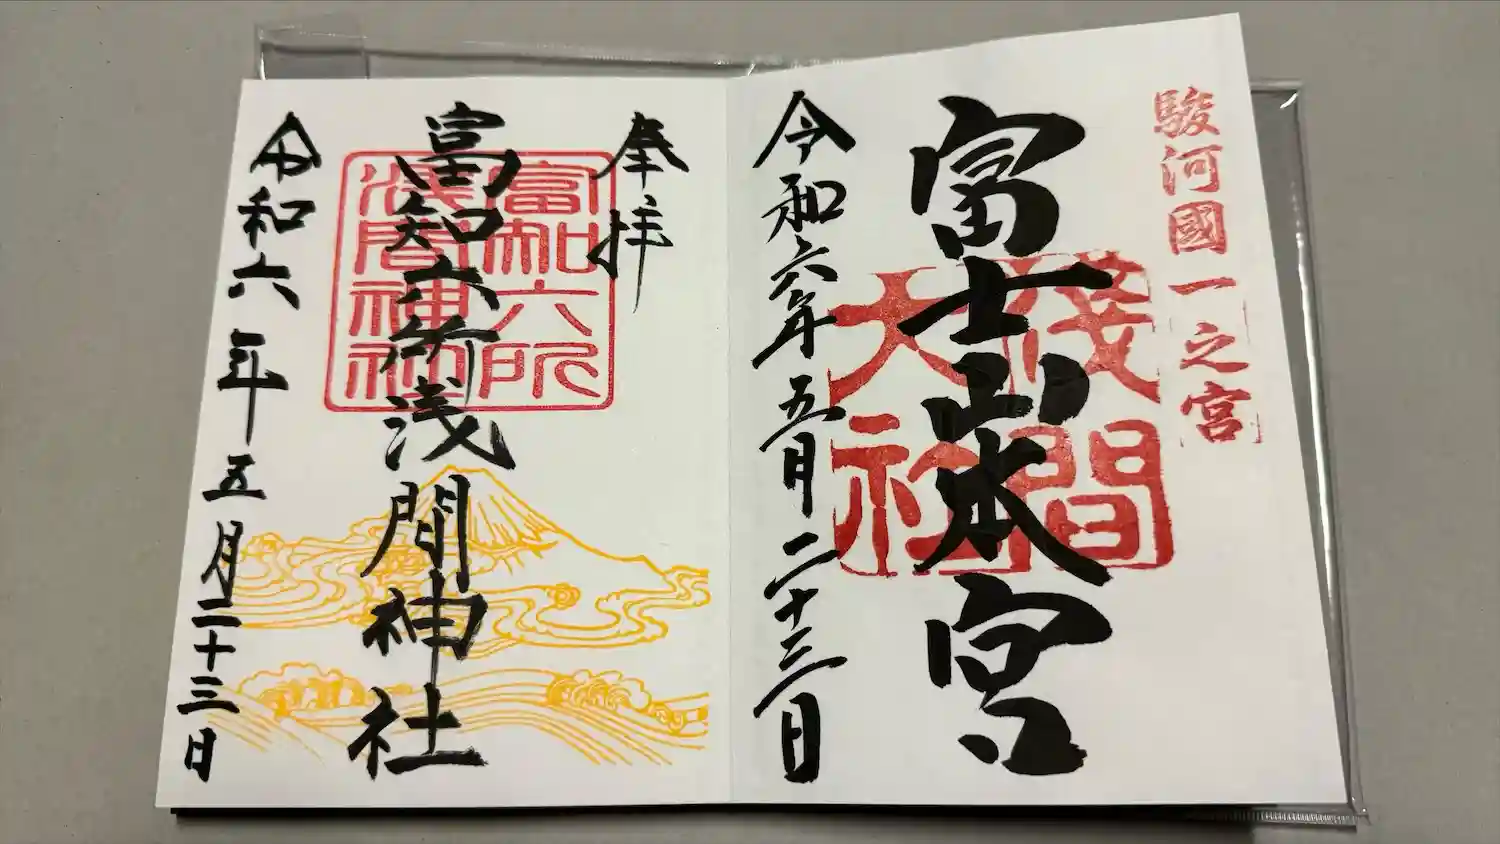 駿河國一之宮
富士山本宮
淺間
大社
令和六年五月二十三日
奉拝
富知六所浅間神社
富知六所
浅間神社
令和六年五月二十三日